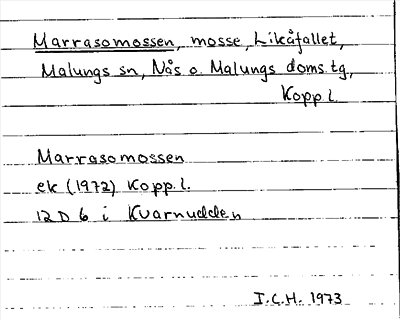 Marrasomossen, mosse, Likåfallet,
Malungs sn, Nås o. Malungs doms.tg,
Kopp.l.
Marrasomossen
ek (1972) Kopp.l.
12 D 6 i Kvarnudden
I.C.H. 1973